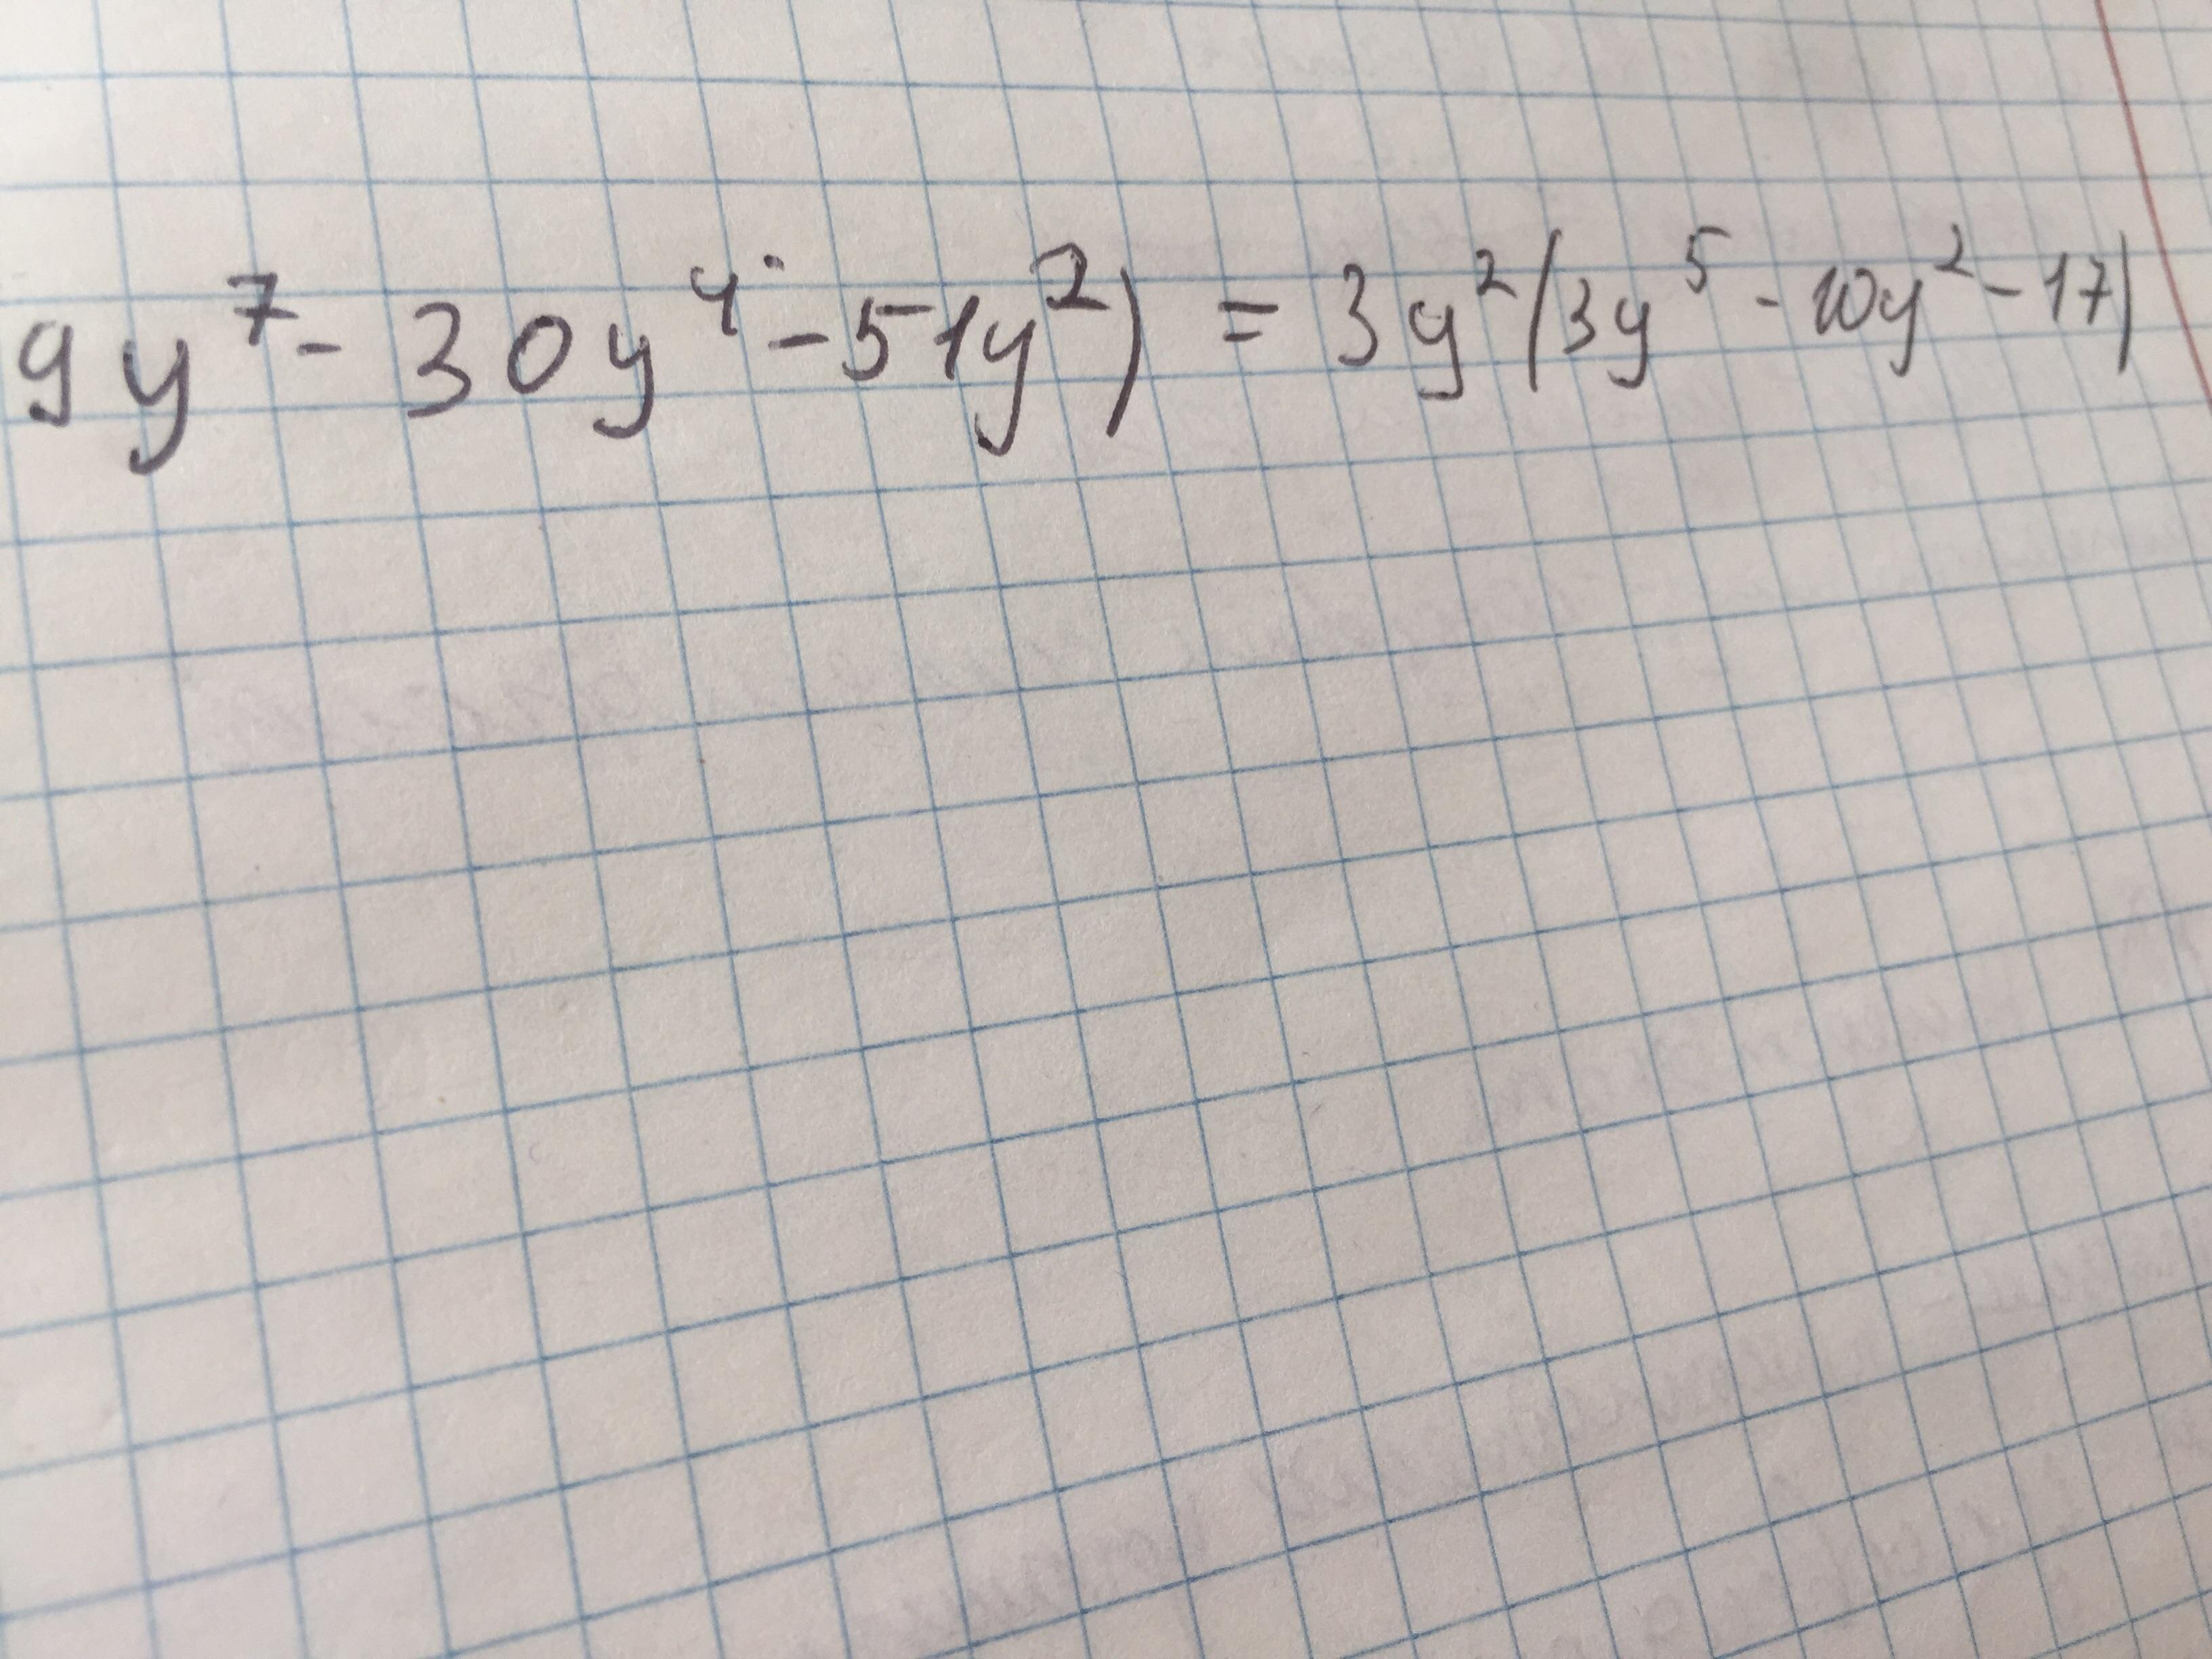 9y⁷ - 30y⁴ - 51y²) = 3y²(3y⁵ - 10y² - 17)